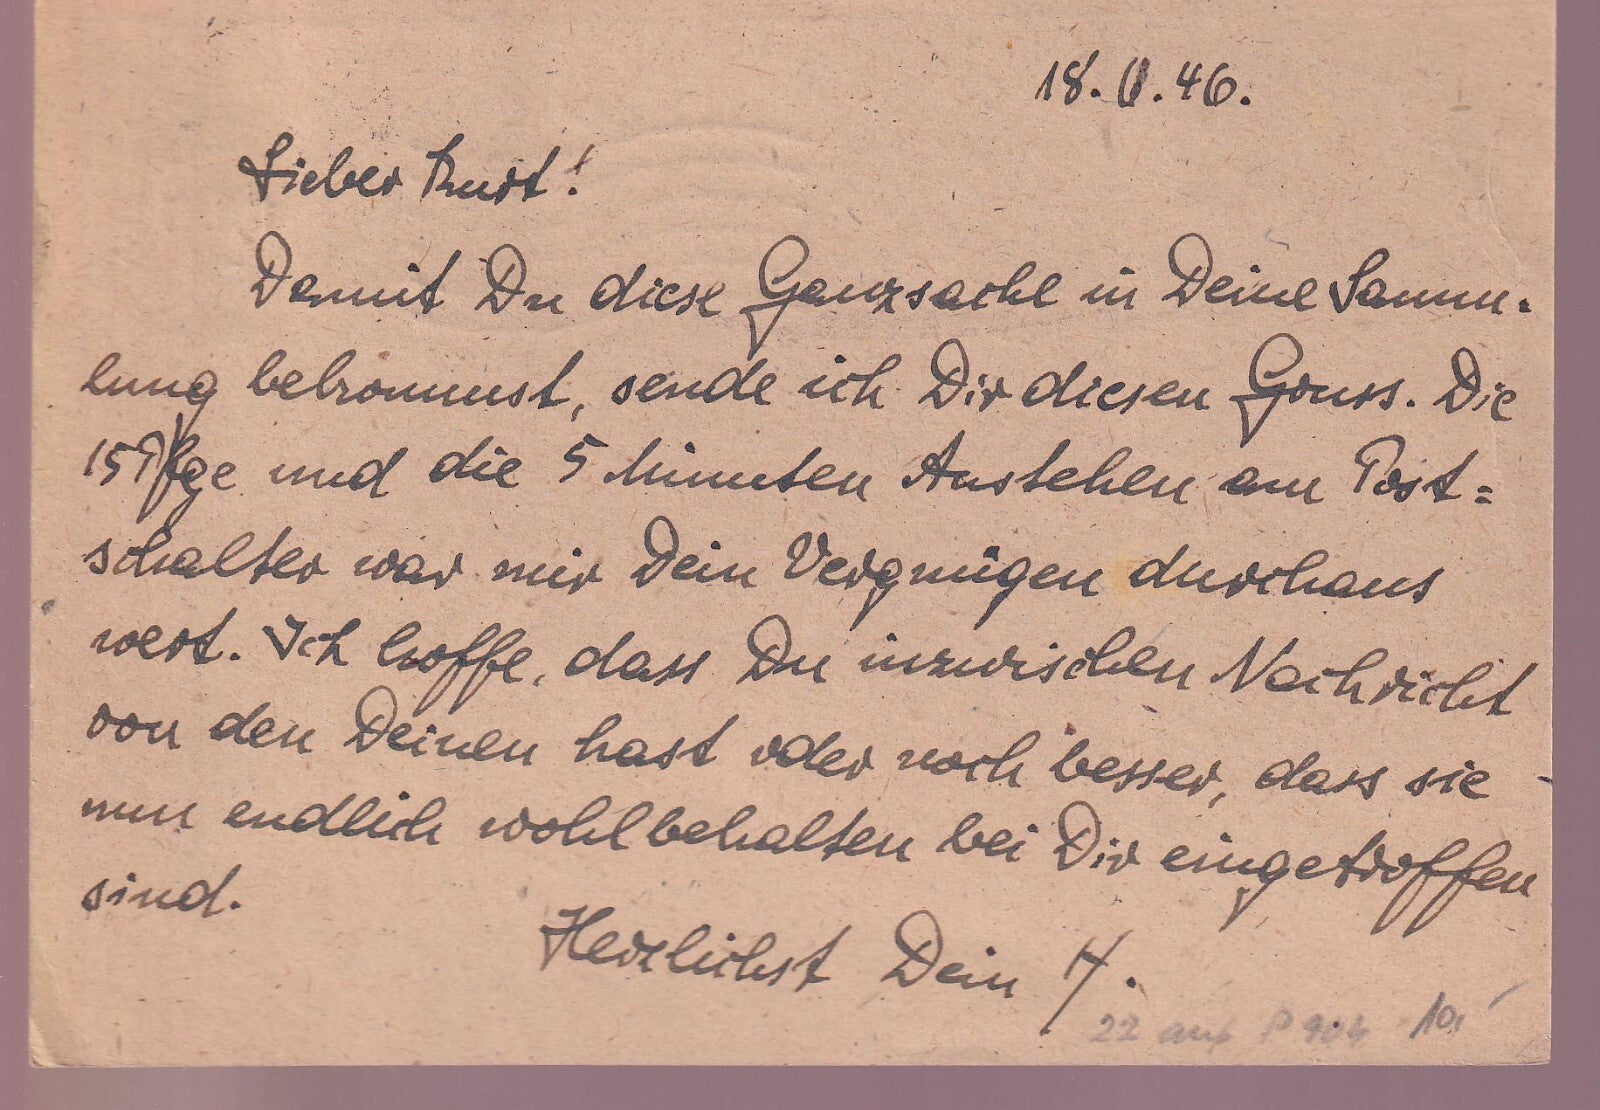 18. 6. 46.
Lieber Kurt!
Damit Du diese Ganzsache in Deine Samm-
lung bekommst, sende ich Dir diesen Gruss. Die
15 Pfge und die 5 Minuten Anstehen am Post=
schalter war mir Dein Vergnügen durchaus
wert. Ich hoffe, dass Du inzwischen Nachricht
von den Deinen hast oder noch besser, dass sie
nun endlich wohlbehalten bei Dir eingetroffen
sind.
Herzlichst Dein H.
22 auf P 10,